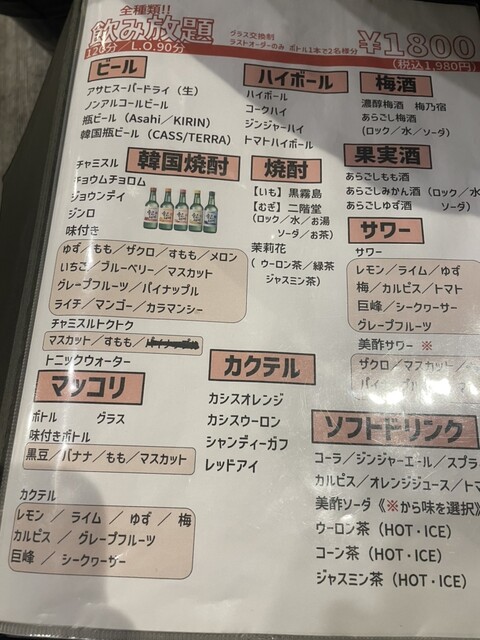 全種類!!
飲み放題
120分／L.O.90分
グラス交換制
ラストオーダーのみ ボトル1本で2名様分
¥1800
(税込1,980円)
ビール
アサヒスーパードライ（生）
ノンアルコールビール
瓶ビール（Asahi／KIRIN）
韓国瓶ビール（CASS/TERRA）
ハイボール
ハイボール
コークハイ
ジンジャーハイ
トマトハイボール
梅酒
濃醇梅酒 梅乃宿
あらごし梅酒
（ロック／水／ソーダ）
韓国焼酎
チャミスル
チョウムチョロム
ジョウンデイ
ジンロ
味付き
ゆず／もも／ザクロ／すもも／メロン
いちご／ブルーベリー／マスカット
グレープフルーツ／パイナップル
ライチ／マンゴー／カラマンシー
チャミスルトクトク
マスカット／すもも／
トニックウォーター
焼酎
【いも】黒霧島
【むぎ】二階堂
（ロック／水／お湯
ソーダ／お茶）
茉莉花
（ウーロン茶／緑茶
ジャスミン茶）
果実酒
あらごしもも酒
あらごしみかん酒（ロック／水
あらごしゆず酒 ソーダ）
サワー
サワー
レモン／ライム／ゆず
梅／カルピス／トマト
巨峰／シークヮーサー
グレープフルーツ
美酢サワー ※
ザクロ／マスカット／
マッコリ
ボトル グラス
味付きボトル
黒豆／バナナ／もも／マスカット
カクテル
レモン ／ ライム ／ ゆず ／ 梅
カルピス ／ グレープフルーツ
巨峰 ／ シークヮーサー
カクテル
カシスオレンジ
カシスウーロン
シャンディーガフ
レッドアイ
ソフトドリンク
コーラ／ジンジャーエール／スプラ
カルピス／オレンジジュース／トマ
美酢ソーダ《※から味を選択》
ウーロン茶（HOT・ICE）
コーン茶（HOT・ICE）
ジャスミン茶（HOT・ICE）